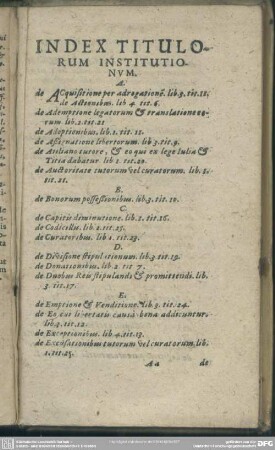 INDEX TITULO-
RUM INSTITUTIO-
NVM.
A.
de ACquisitione per adrogationē. lib.3. tit.11.
de Actionibus. lib 4. tit.6.
de Ademptione legatorum & translatione eo-
rum lib.2. tit.21
de Adoptionibus. lib.1. tit. 11.
de Assignatione libertorum. lib 3. tit.9.
de Atiliano tutore, & eo qui ex lege Iulia &
Titia dabatur. lib 1. tit.20.
de Auctoritate tutorum vel curatorum. lib. 1.
tit. 21.
B.
de Bonorum possessionibus. lib.3. tit. 10.
C.
de Capitis diminutione. lib. 1. tit.16.
de Codicillis. lib. 2. tit.25.
de Curatoribus. lib 1. tit.23.
D.
de Divisione stipulationum. lib.3. tit.19.
de Donationibus. lib 2. tit 7.
de Duobus Reis stipulandi & promittendi. lib.
3. tit.17.
E.
de Emptione & Venditione. lib 3. tit.24.
de Eo cui libertatis causa bona addicuntur.
lib.3. tit.12.
de Exceptionibus. lib 4. tit.13.
de Excusationibus tutorum vel curatorum. lib.
1. tit.25.
Aa
de